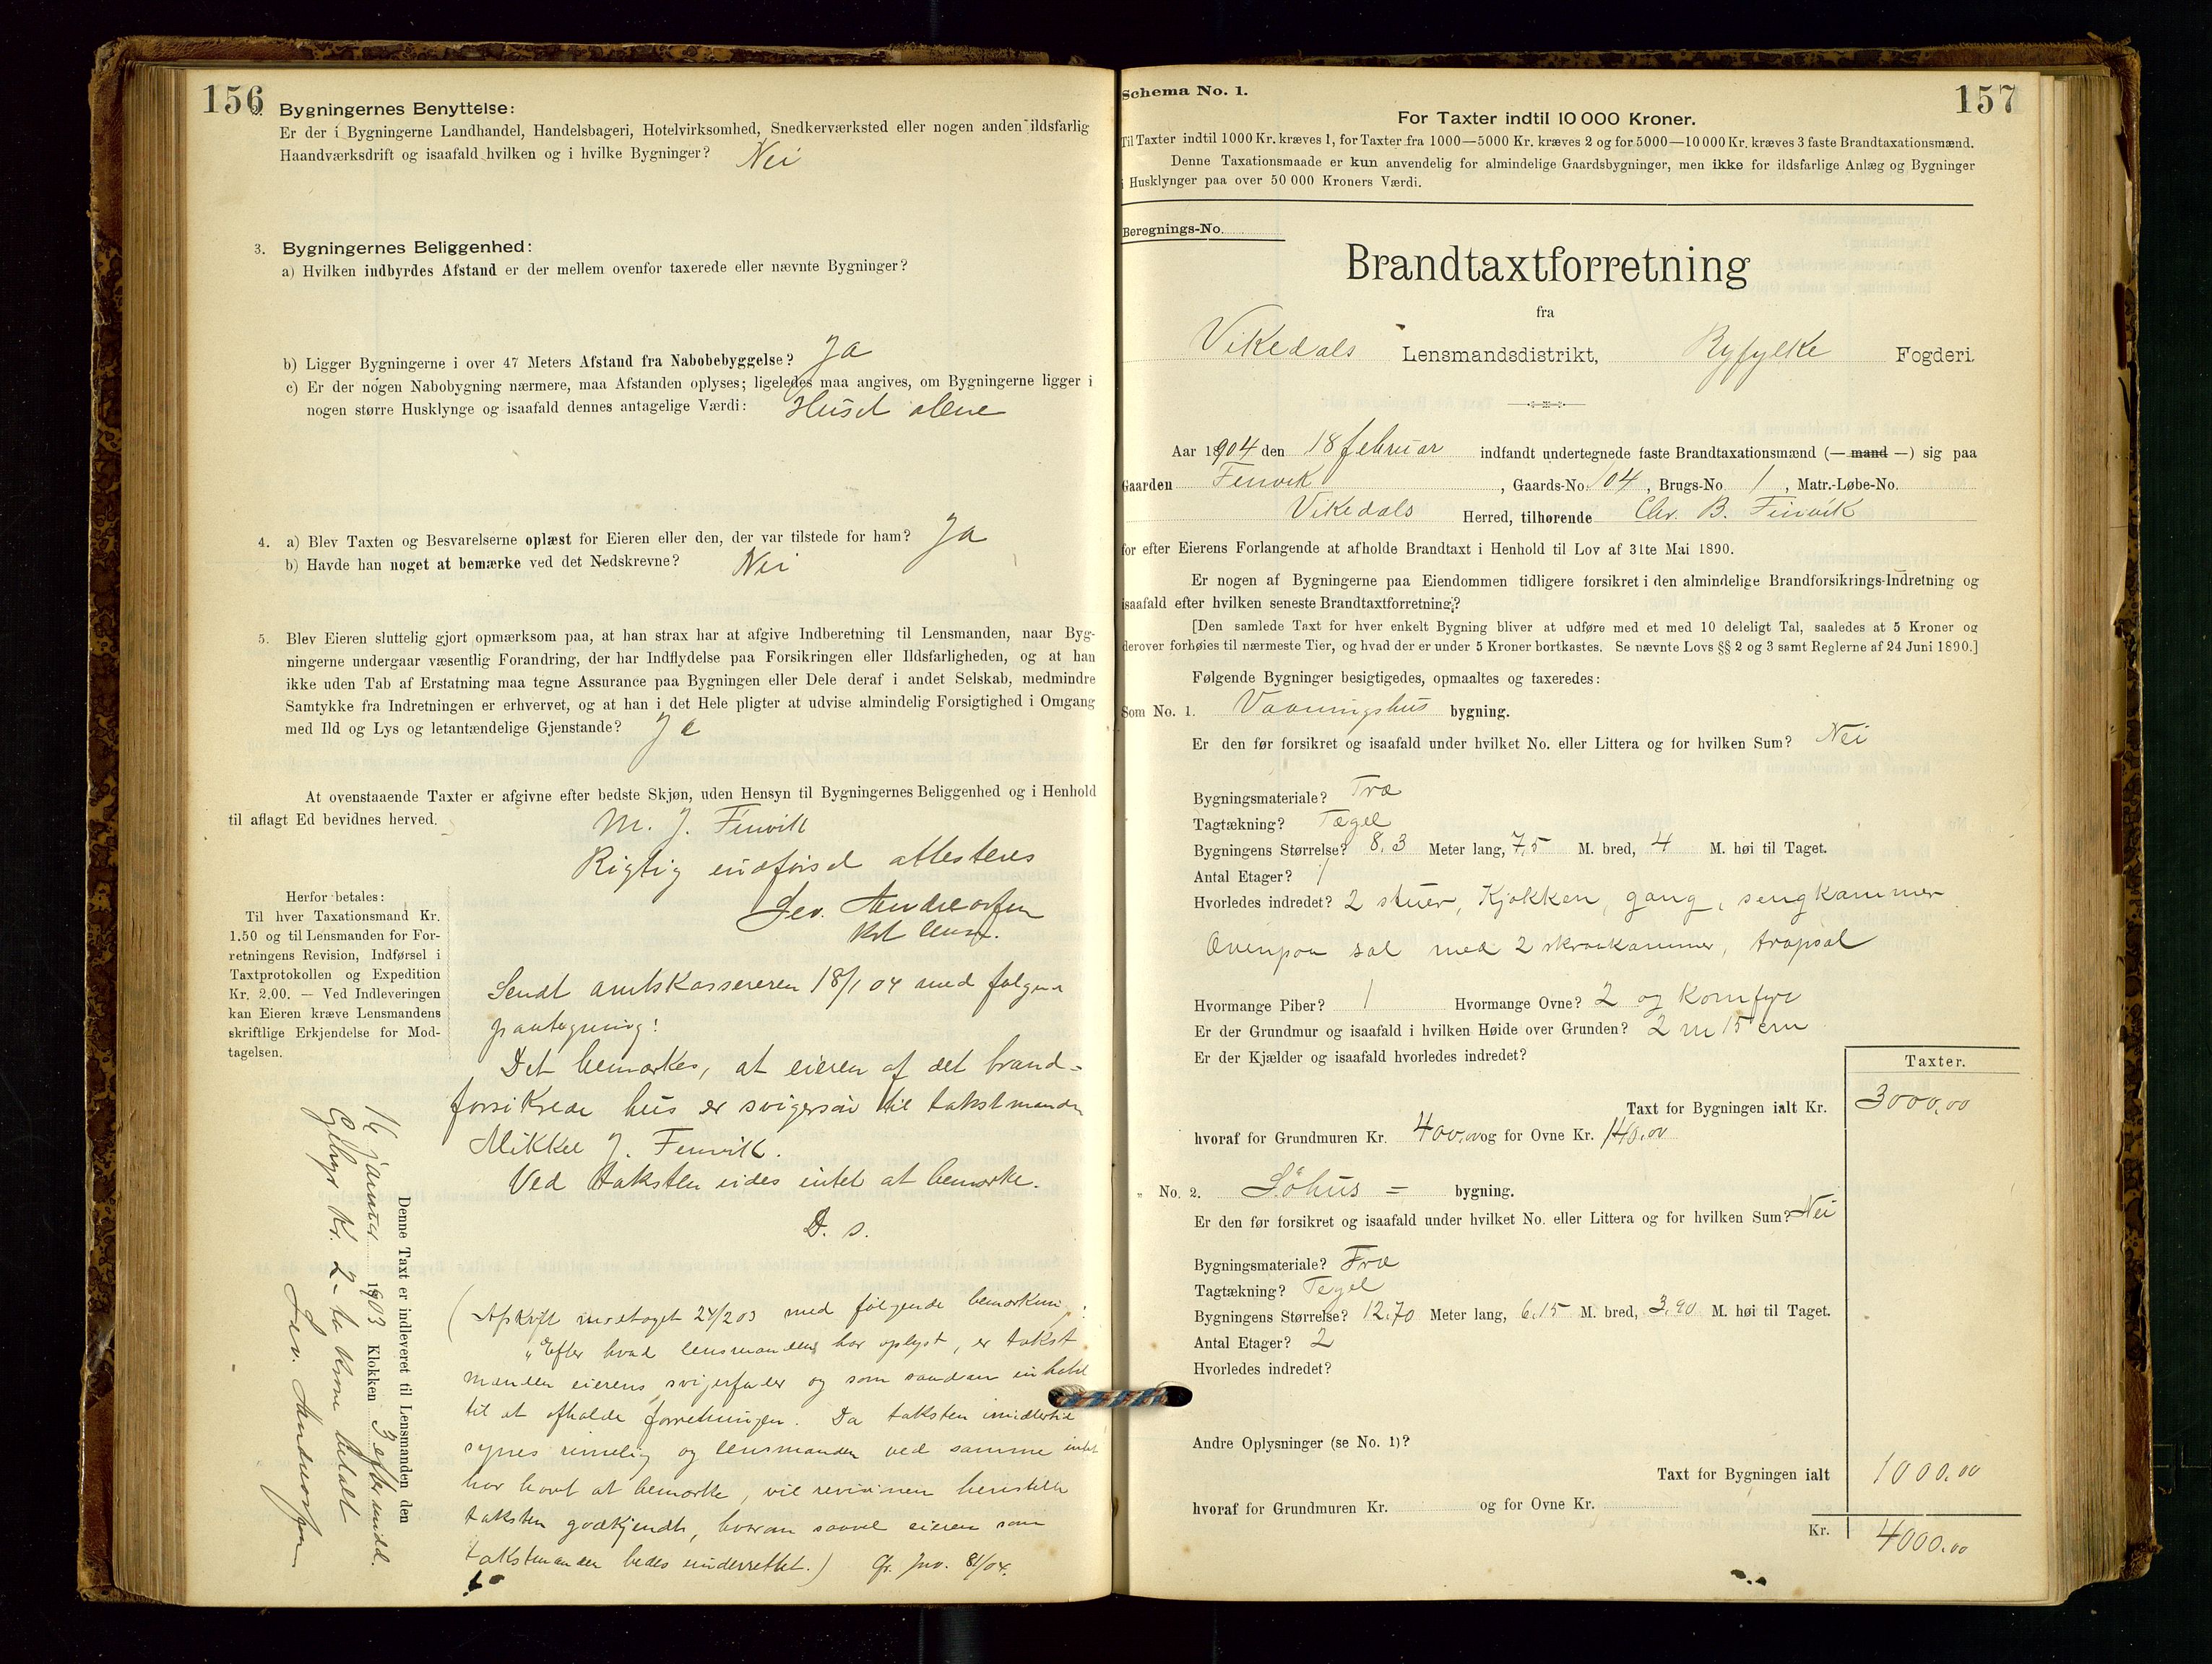 156
2. Bygningernes Benyttelse:
Er der i Bygningerne Landhandel, Handelsbageri, Hotelvirksomhed, Snedkerværksted eller nogen anden ildsfarlig
Haandværksdrift og isaafald hvilken og i hvilke Bygninger? Nei
3. Bygningernes Beliggenhed:
a) Hvilken indbyrdes Afstand er der mellem ovenfor taxerede eller nævnte Bygninger?
b) Ligger Bygningerne i over 47 Meters Afstand fra Nabobebyggelse? Ja
c) Er der nogen Nabobygning nærmere, maa Afstanden oplyses; ligeledes maa angives, om Bygningerne ligger i
nogen større Husklynge og isaafald dennes antagelige Værdi: Huset alene
4. a) Blev Taxten og Besvarelserne oplæst for Eieren eller den, der var tilstede for ham? Ja
b) Havde han noget at bemærke ved det Nedskrevne? Nei
5. Blev Eieren sluttelig gjort opmærksom paa, at han strax har at afgive Indberetning til Lensmanden, naar Byg-
ningerne undergaar væsentlig Forandring, der har Indflydelse paa Forsikringen eller Ildsfarligheden, og at han
ikke uden Tab af Erstatning maa tegne Assurance paa Bygningen eller Dele deraf i andet Selskab, medmindre
Samtykke fra Indretningen er erhvervet, og at han i det Hele pligter at udvise almindelig Forsigtighed i Omgang
med Ild og Lys og letantændelige Gjenstande? Ja
At ovenstaaende Taxter er afgivne efter bedste Skjøn, uden Hensyn til Bygningernes Beliggenhed og i Henhold
til aflagt Ed bevidnes herved.
M. J. Fervik
Rigtig indførsel attesteres
Sev. Andreassen
Kst lensm.
Herfor betales:
Til hver Taxationsmand Kr.
1.50 og til Lensmanden for For-
retningens Revision, Indførsel i
Taxtprotokollen og Expedition
Kr. 2.00. — Ved Indleveringen
kan Eieren kræve Lensmandens
skriftlige Erkjendelse for Mod-
tagelsen.
Sendt amtskassereren 18/1 04 med følgende
paategning:
Det bemærkes, at eieren af det brand=
forsikrede hus er svigersøn til takstmanden
Mikkel J. Fervik.
Ved taksten vides intet at bemærke.
D. s.
(Afskrift modtaget 24/2 03 med følgende bemærkning:
"Efter hvad lensmanden har oplyst, er takst
manden eierens svigerfader og som saadan inhabil
til at afholde forretningen. Da taksten imidlertid
synes rimelig og lensmanden ved samme intet
har havt at bemærke, vil revisionen henstille
taksten godkjendt, hvorom saavel eieren som
takstmanden bedes underrettet.) Gr. Jno. 81/04.
Denne Taxt er indleveret til Lensmanden den
14 januar 1903 Klokken 3 eftermidd.
Gebyr Kr. 2- to Kroner betalt
Sev. Andreassen
157
Schema No. 1.
For Taxter indtil 10 000 Kroner.
Til Taxter indtil 1000 Kr. kræves 1, for Taxter fra 1000—5000 Kr. kræves 2 og for 5000—10 000 Kr. kræves 3 faste Brandtaxationsmænd.
Denne Taxationsmaade er kun anvendelig for almindelige Gaardsbygninger, men ikke for ildsfarlige Anlæg og Bygninger
i Husklynger paa over 50 000 Kroners Værdi.
Beregnings-No.
Brandtaxtforretning
fra
Vikedals Lensmandsdistrikt, Ryfylke Fogderi.
Aar 1904 den 18 februar indfandt undertegnede faste Brandtaxationsmænd (— mand —) sig paa
Gaarden Fervik, Gaards-No. 104, Brugs-No. 1, Matr.-Løbe-No.
Vikedals Herred, tilhørende Chr. B. Fervik
for efter Eierens Forlangende at afholde Brandtaxt i Henhold til Lov af 31te Mai 1890.
Er nogen af Bygningerne paa Eiendommen tidligere forsikret i den almindelige Brandforsikrings-Indretning og
isaafald efter hvilken seneste Brandtaxtforretning?
[Den samlede Taxt for hver enkelt Bygning bliver at udføre med et med 10 deleligt Tal, saaledes at 5 Kroner og
derover forhøies til nærmeste Tier, og hvad der er under 5 Kroner bortkastes. Se nævnte Lovs §§ 2 og 3 samt Reglerne af 24 Juni 1890.]
Følgende Bygninger besigtigedes, opmaaltes og taxeredes:
Som No. 1. Vaaningshus bygning.
Er den før forsikret og isaafald under hvilket No. eller Littera og for hvilken Sum? Nei
Bygningsmateriale? Træ
Tagtækning? Tegel
Bygningens Størrelse? 8,3 Meter lang, 7,5 M. bred, 4 M. høi til Taget.
Antal Etager? 1
Hvorledes indredet? 2 stuer, Kjøkken, gang, sengkammer
Ovenpaa sal med 2 skraakammer, trapsal
Hvormange Piber? 1 Hvormange Ovne? 2 og komfyr
Er der Grundmur og isaafald i hvilken Høide over Grunden? 2 m 15 cm
Er der Kjælder og isaafald hvorledes indredet?
Taxter.
Taxt for Bygningen ialt Kr. 3000,00
hvoraf for Grundmuren Kr. 400,00 og for Ovne Kr. 140,00
" No. 2. Søhus = bygning.
Er den før forsikret og isaafald under hvilket No. eller Littera og for hvilken Sum? Nei
Bygningsmateriale? Træ
Tagtækning? Tegel
Bygningens Størrelse? 12,70 Meter lang, 6,15 M. bred, 3,90 M. høi til Taget.
Antal Etager? 2
Hvorledes indredet?
Andre Oplysninger (se No. 1)?
Taxt for Bygningen ialt 1000,00
hvoraf for Grundmuren Kr. og for Ovne Kr.
Kr. 4000,00